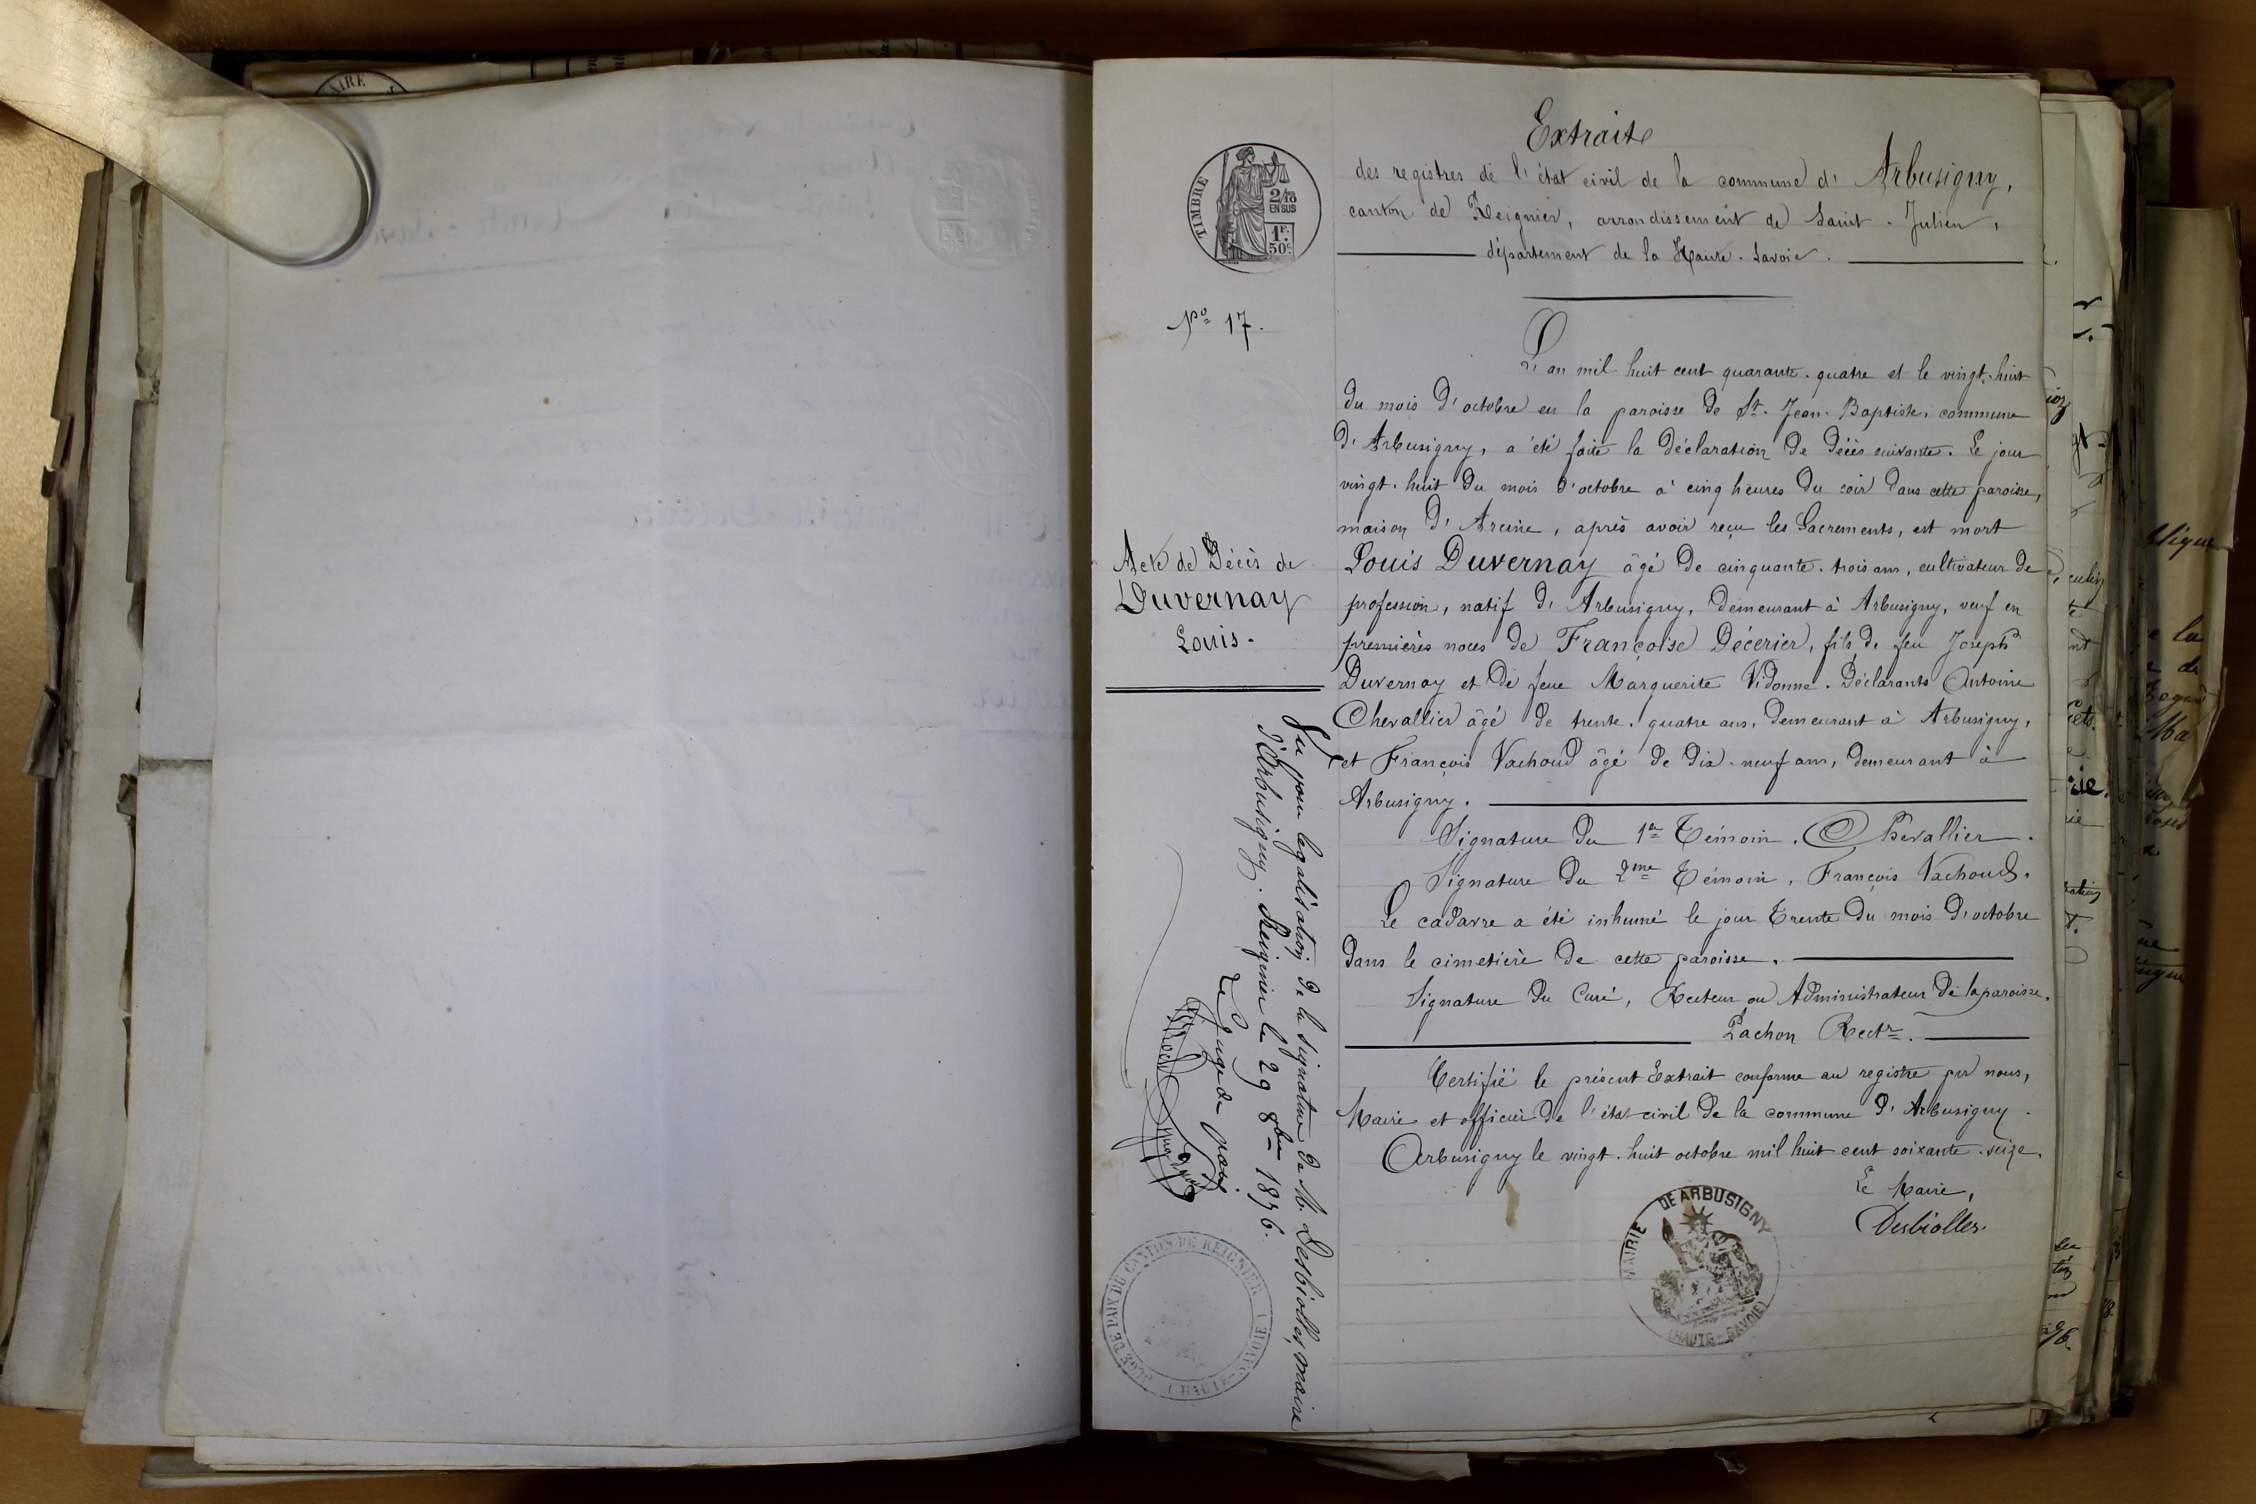 Extrait
des registres de l'état civil de la commune d'Arbusigny,
canton de Reignier, arrondissement de Saint-Julien,
département de la Haute-Savoie.
TIMBRE
2/10
EN SUS
1F.
50c.
No 17.
L'an mil huit cent quarante-quatre et le vingt-huit
du mois d'octobre en la paroisse de St. Jean-Baptiste, commune
d'Arbusigny, a été faite la déclaration de décès suivante. Le jour
vingt-huit du mois d'octobre à cinq heures du soir dans cette paroisse,
maison d', après avoir reçu les Sacrements, est mort
Louis Duvernay âgé de cinquante-trois ans, cultivateur de
profession, natif d'Arbusigny, demeurant à Arbusigny, veuf en
premières noces de Françoise Décerier, fils de feu Joseph
Duvernay et de feue Marguerite Vidonne. Déclarants Antoine
Chevallier âgé de trente-quatre ans, demeurant à Arbusigny,
et François Vachoud âgé de dix-neuf ans, demeurant à
Arbusigny.
Signature du 1er Témoin. Chevallier.
Signature du 2me Témoin, François Vachoud.
Le cadavre a été inhumé le jour trente du mois d'octobre
dans le cimetière de cette paroisse.
Signature du Curé, Recteur ou Administrateur de la paroisse.
Lachon Rectr.
Certifié le présent Extrait conforme au registre par nous,
Maire et officier de l'état civil de la commune d'Arbusigny.
Arbusigny le vingt-huit octobre mil huit cent soixante-seize.
Le Maire,
Desbiolles.
MAIRIE DE ARBUSIGNY
(HAUTE-SAVOIE)
Acte de Décès de
Duvernay
Louis.
Vu pour légalisation de la signature de M. Desbiolles, maire
d'Arbusigny. Reignier le 29 8bre 1876.
Le Juge de paix
JUGE DE PAIX DE CANTON DE REIGNIER
(HAUTE-SAVOIE)